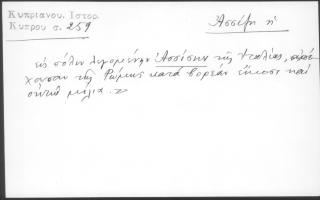 Κυπριανου. Ιστορ.
Κυπρου σ. 259
Ἀσσίζη ἡ
εἰς πόλιν λεγομένην Ἀσσίσην τῆς Ἰταλίας,
τῆς Ρώμης κατὰ βορέαν εἴκοσι καὶ
ὀκτὼ μίλια.